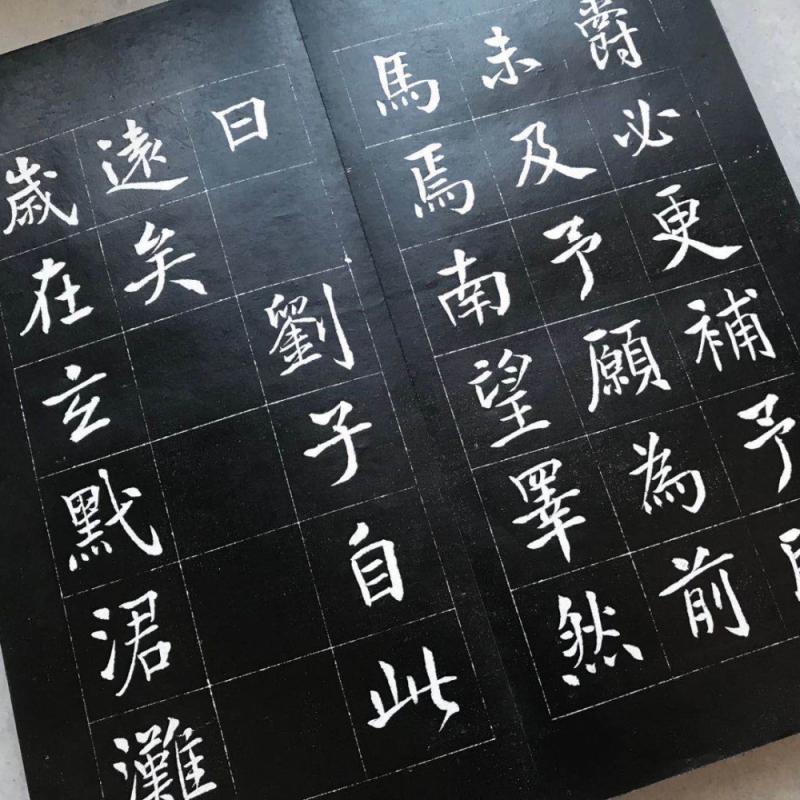 爵必更補予
未及予願為前
馬焉南望睪然
曰 劉子自此
遠矣
歲在玄黓涒灘